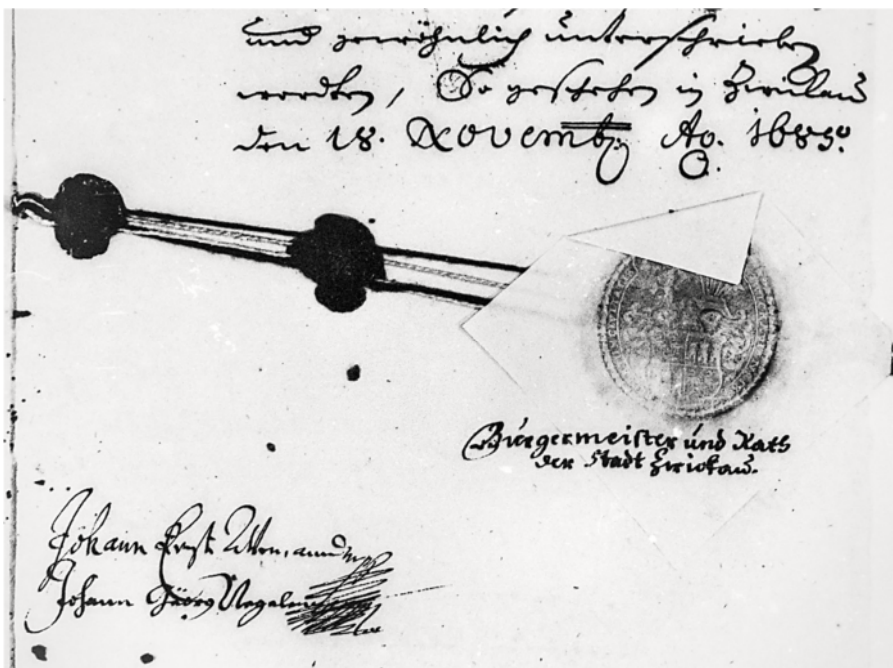 und gewöhnlich unterschrieben
worden, So geschehen in Zwickau
den 18. Novemb: Ao. 1685.
Bürgermeister und Rath
der Stadt Zwickau.
Johann Ernst
Johann Georg